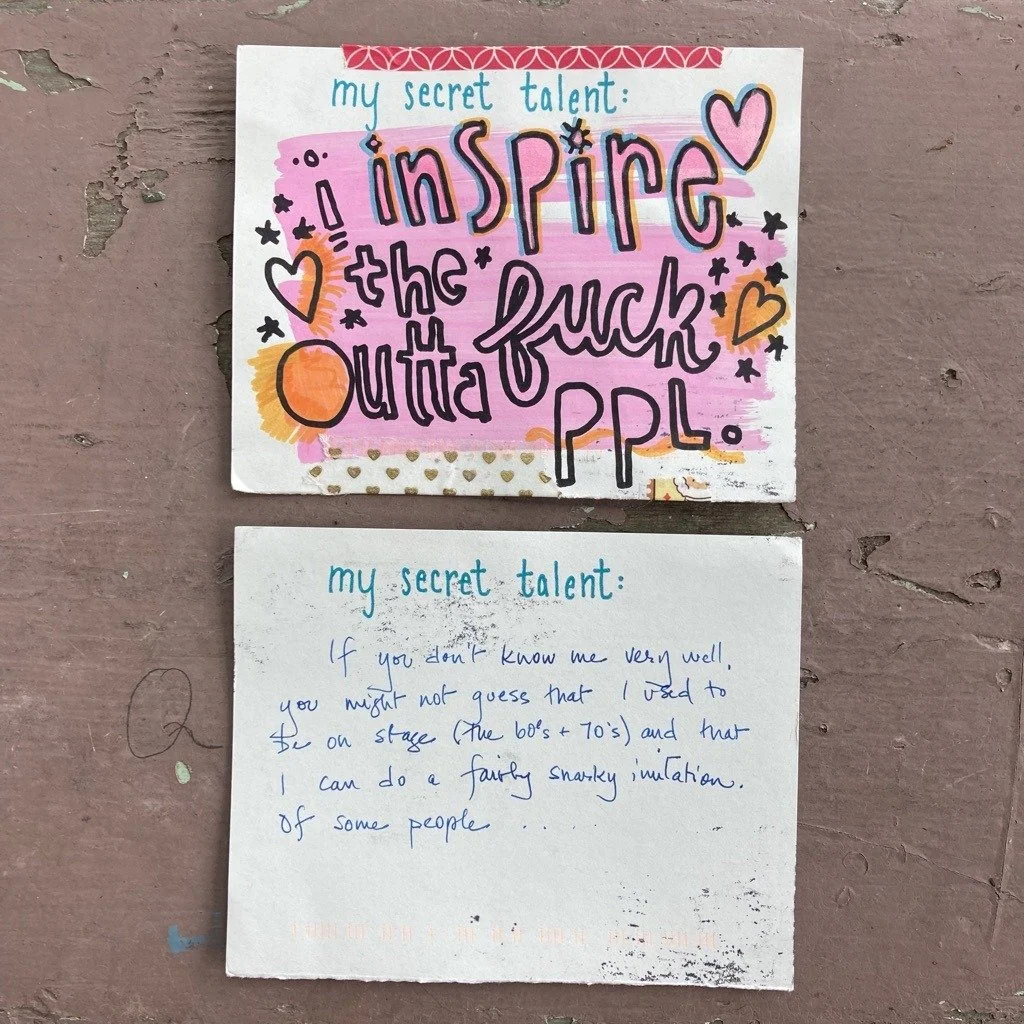 my secret talent:
i inspire
the fuck
outta
PPL.
my secret talent:
If you don't know me very well,
you might not guess that I used to
be on stage (the 60's + 70's) and that
I can do a fairly snarky imitation.
of some people ....
Q